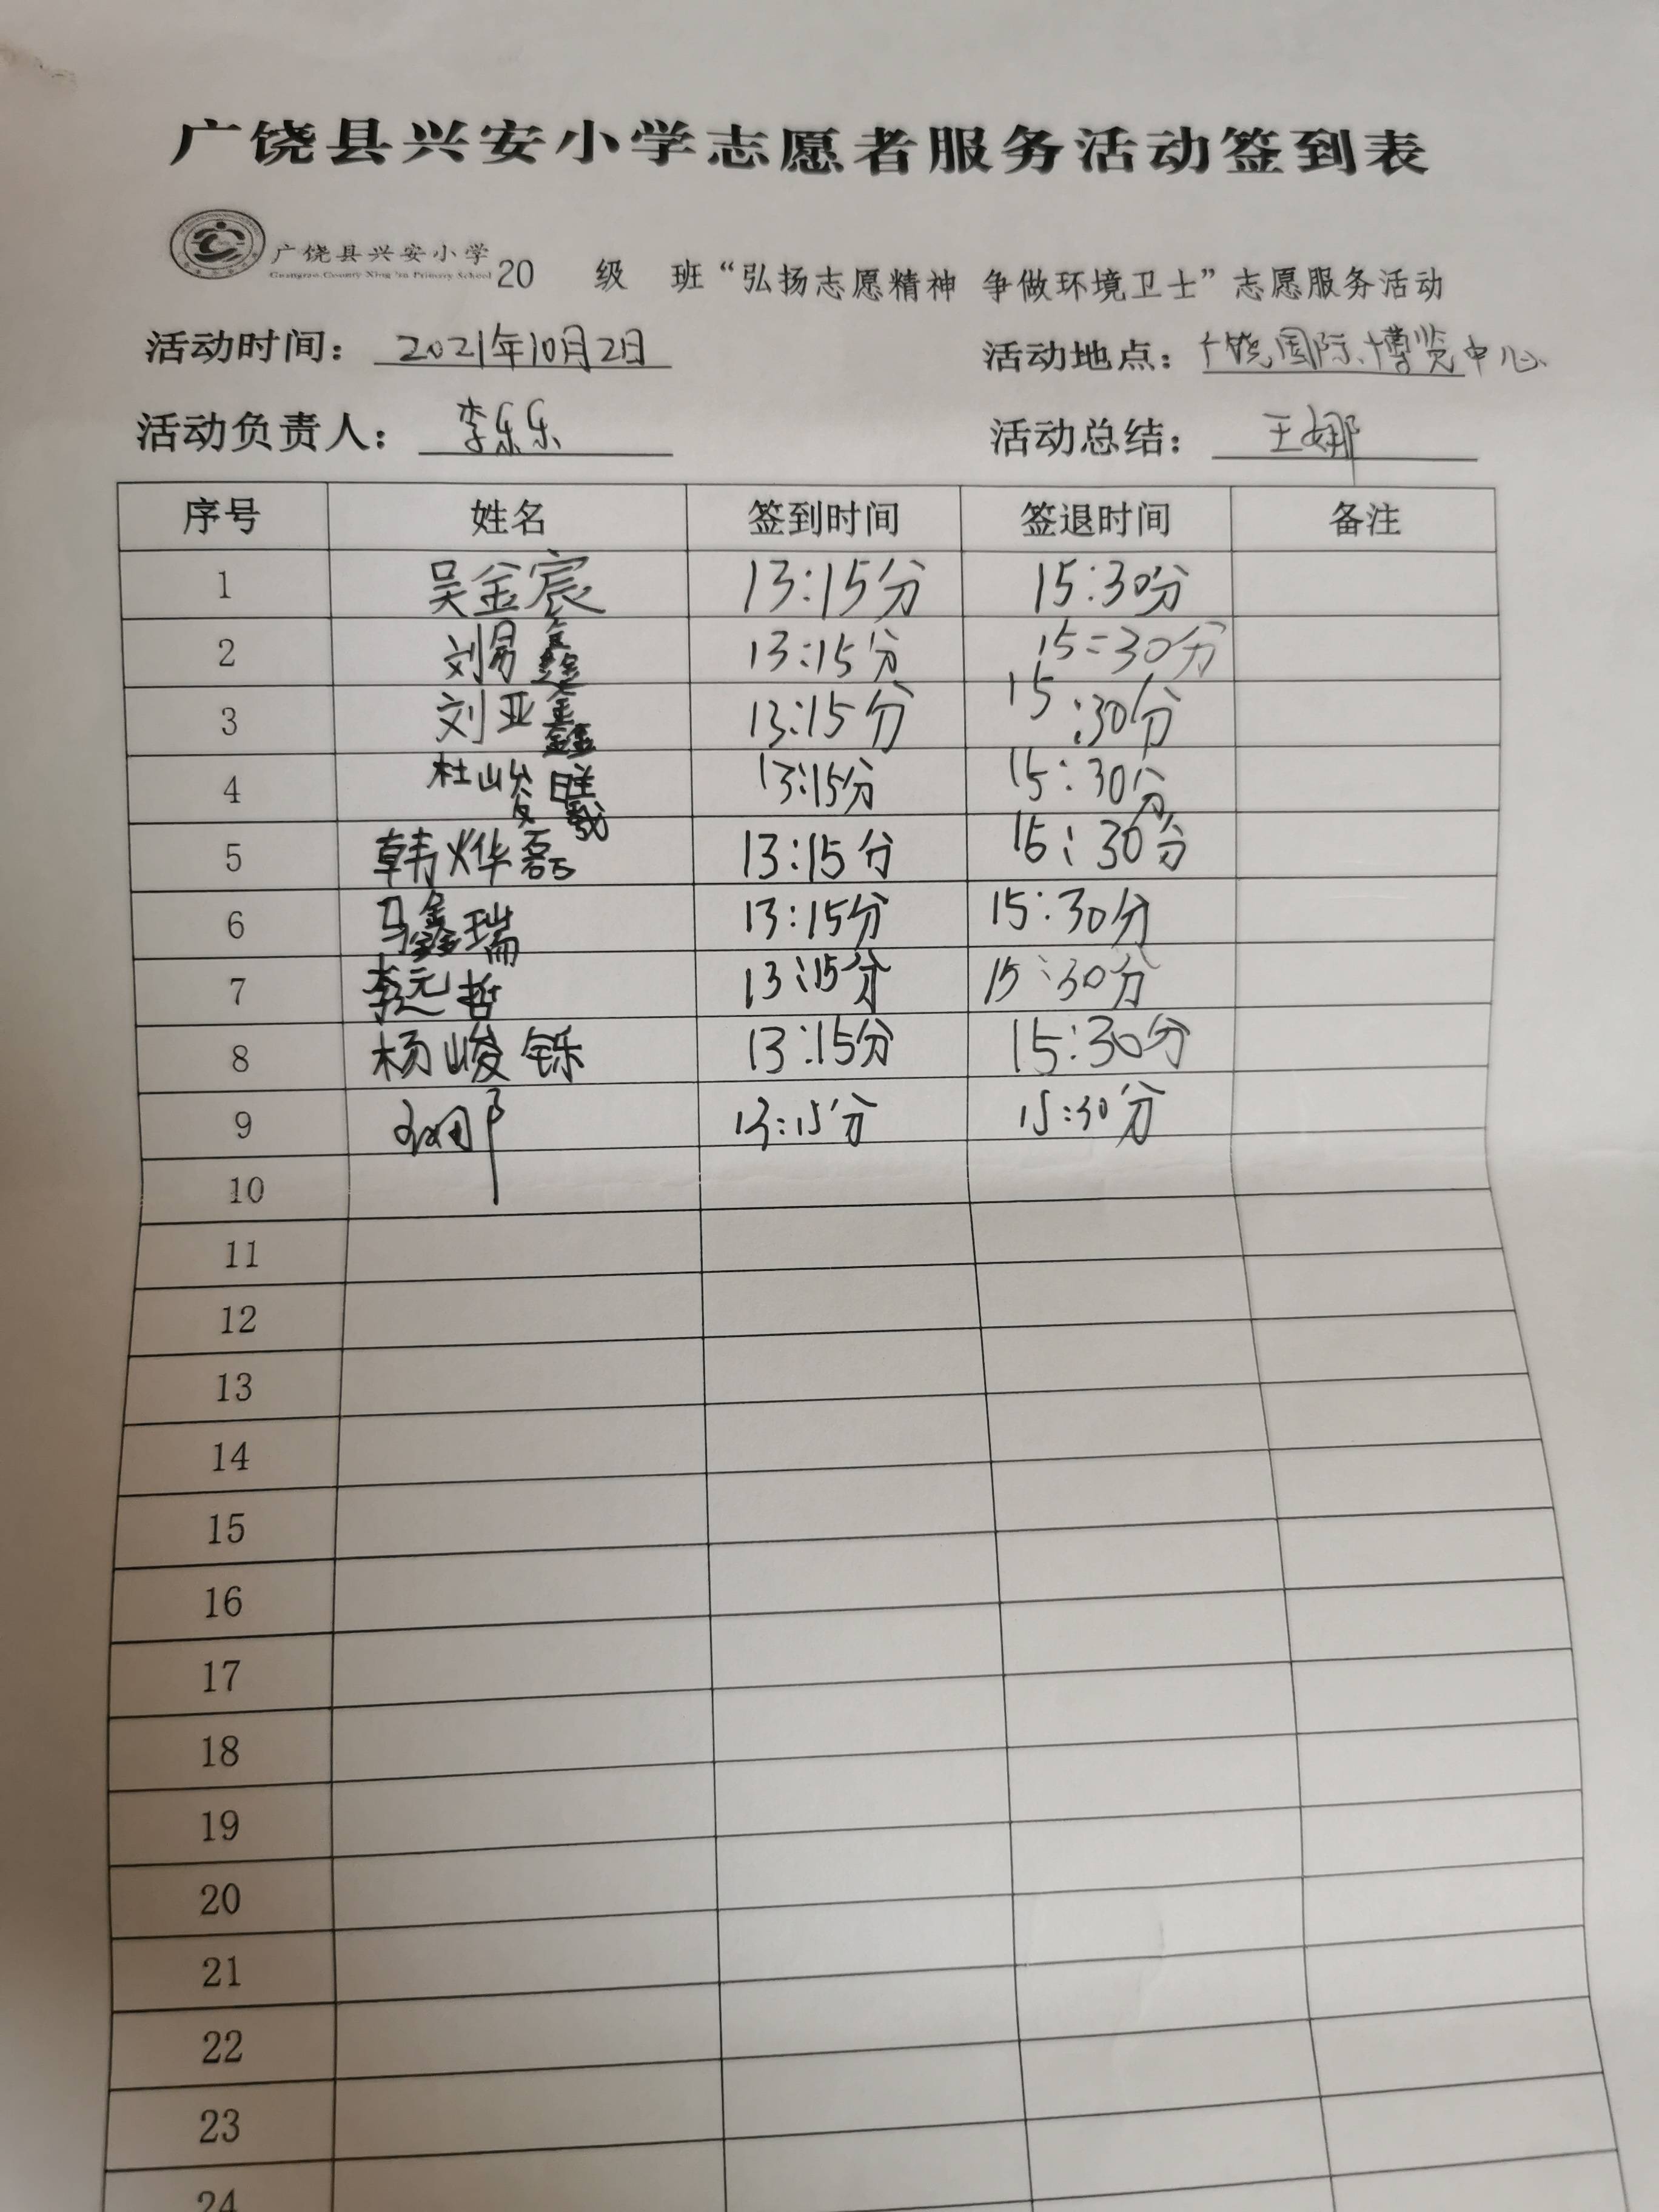 广饶县兴安小学志愿者服务活动签到表
广饶县兴安小学 20 级 班“弘扬志愿精神 争做环境卫士”志愿服务活动
Guangrao County Xing 'an Primary School
活动时间： 2021年10月2日 活动地点： 广饶国际博览中心
活动负责人： 李乐乐 活动总结： 王娜
序号 姓名 签到时间 签退时间 备注
1 吴金宸 13:15分 15:30分
2 刘易鑫 13:15分 15:30分
3 刘亚鑫 13:15分 15:30分
4 杜峻曦 13:15分 15:30分
5 韩烨磊 13:15分 15:30分
6 马鑫瑞 13:15分 15:30分
7 李远哲 13:15分 15:30分
8 杨峻铄 13:15分 15:30分
9 13:15分 15:30分
10
11
12
13
14
15
16
17
18
19
20
21
22
23
24